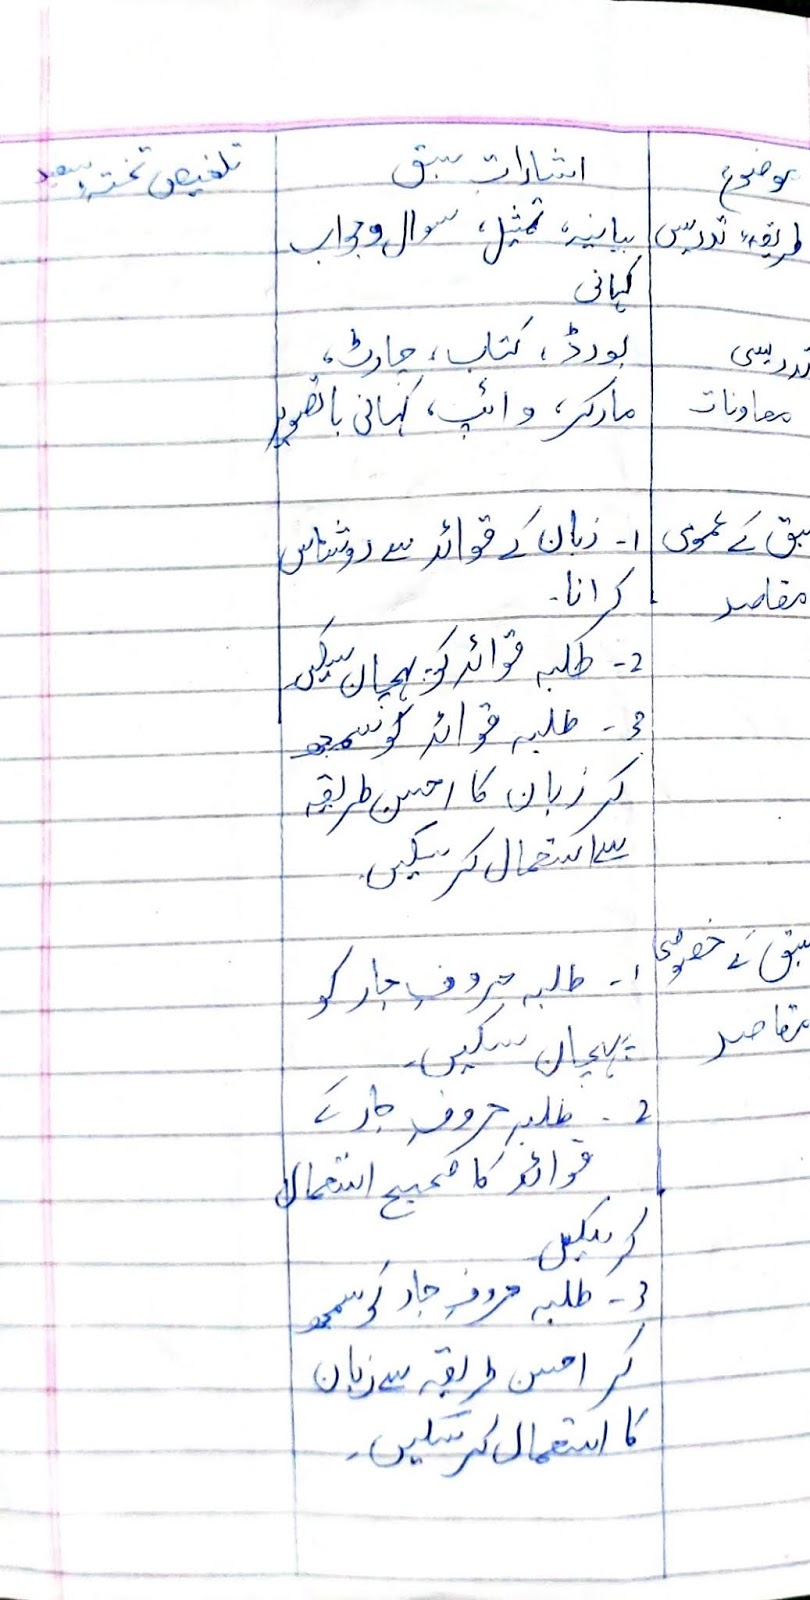 موضوع اشارات سبق تلخیص تختہ سفید
طریقہ تدریس بیانیہ، تمثیل، سوال و جواب
کہانی
تدریسی بورڈ، کتاب، چارٹ،
معاونات مارکر، وائپ، کہانی با تصویر
سبق کے عمومی 1- زبان کے قوائد سے روشناس
مقاصد کرانا۔
2- طلبہ قوائد کو پہچان سکیں
3- طلبہ قوائد کو سمجھ
کر زبان کا احسن طریقہ
سے استعمال کر سکیں۔
سبق کے خصوصی 1- طلبہ حروف جار کو
مقاصد پہچان سکیں۔
2- طلبہ حروف جار کے
قوائد کا صحیح استعمال
کر سکیں
3- طلبہ حروف جار کو سمجھ
کر احسن طریقہ سے زبان
کا استعمال کر سکیں۔